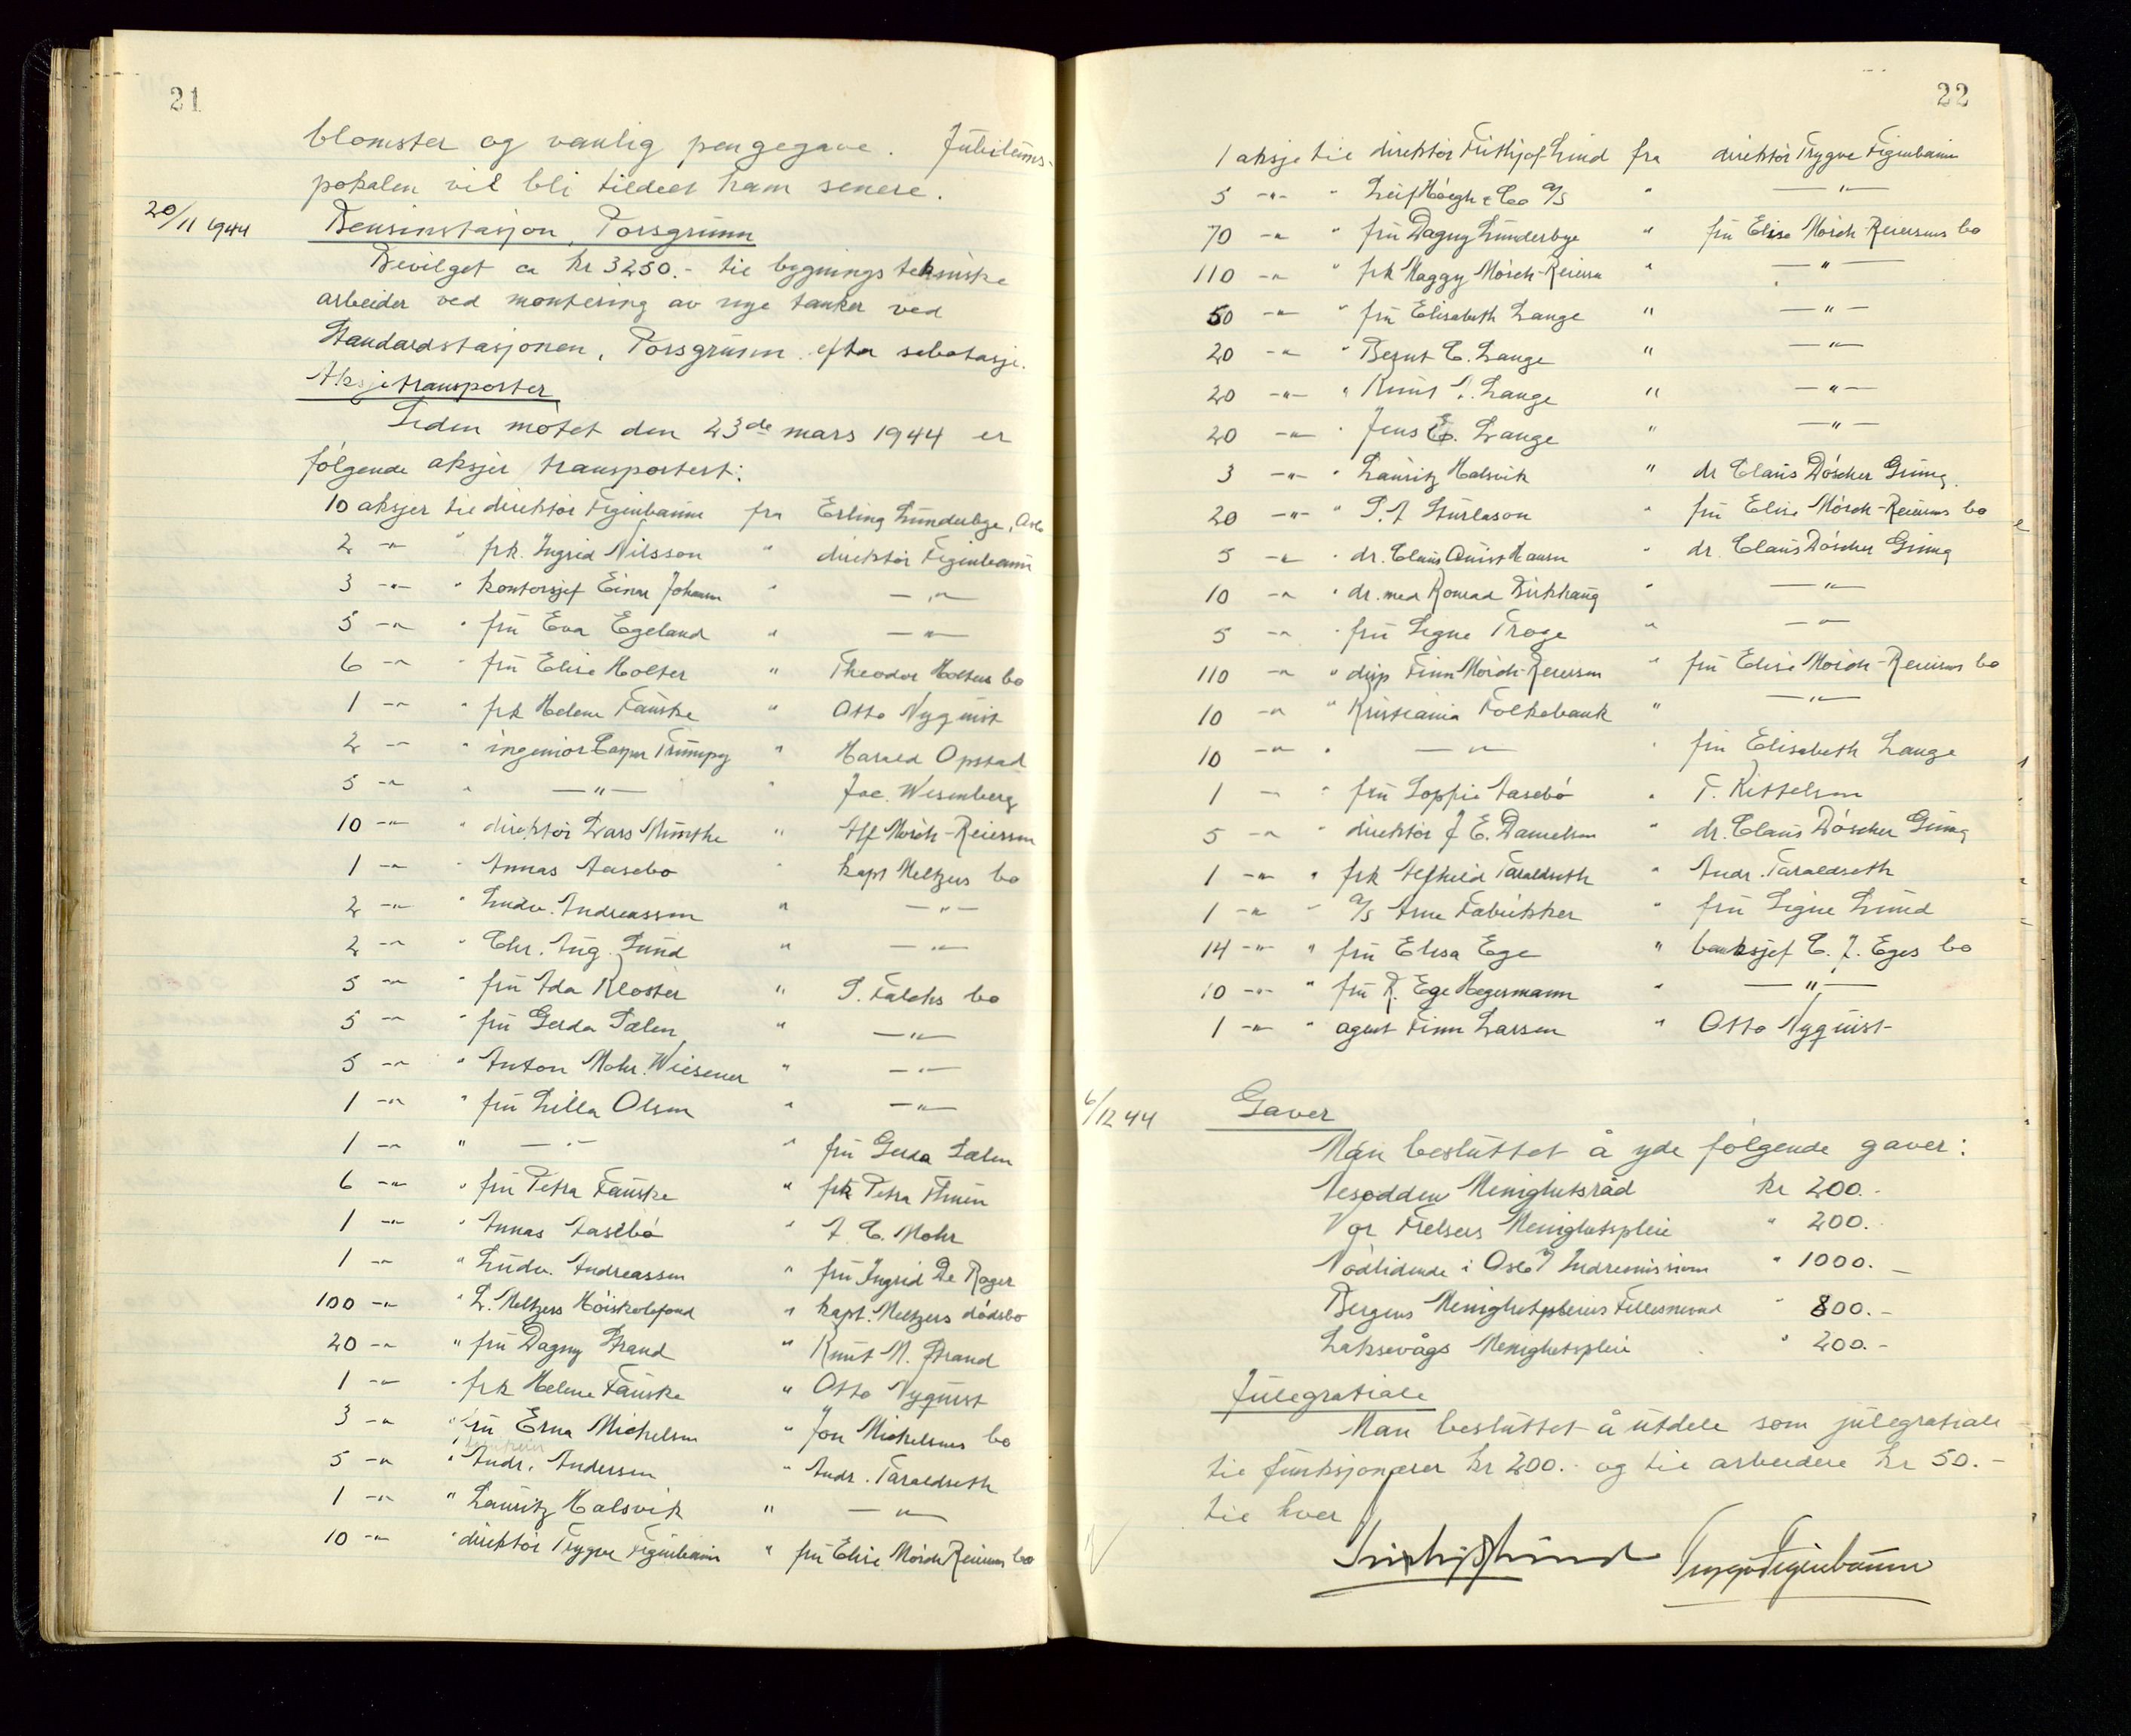 21
blomster og vanlig pengegave. Jubileums-
pokalen vil bli tildelt ham senere.
20/11 1944
Bensinstasjon, Porsgrunn
Bevilget ca kr 3250.- til bygningstekniske
arbeider ved montering av nye tanker ved
Standardstasjonen, Porsgrunn efter sabotasje.
Aksjetransporter
Siden møtet den 23de mars 1944 er
følgende aksjer transportert:
10 aksjer til direktør Figenbaum fra Erling Lunderbye, Oslo
2 -"- " frk. Ingrid Nilsson " direktør Figenbaum
3 -"- " kontorsjef Einar Johansen " -"-
5 -"- " fru Eva Egeland " -"-
6 -"- " fru Elise Holter " Theodor Holters bo
1 -"- " frk Helene Fauske " Otto Nyquist
2 -"- " ingeniør Caspar Trumpy " Harald Opstad
5 -"- " -"- " Jac. Wesenberg
10 -"- " direktør Lars Munthe " Alf Mørch-Reiersen
1 -"- " Annas Aasebø " kapt Meltzers bo
2 -"- " Ludv. Andreassen " -"-
2 -"- " Chr. Aug. Lund " -"-
5 -"- " fru Ada Kloster " S. Falchs bo
5 -"- " fru Gerda Sælen " -"-
5 -"- " Anton Mohr Wiesener " -"-
1 -"- " fru Lilla Olsen " -"-
1 -"- " -"- " fru Gerda Sælen
6 -"- " fru Petra Fauske " frk Petra
1 -"- " Annas Aasebø " A. C. Mohr
1 -"- " Ludv. Andreassen " fru Ingrid De Roger
100 -"- " L. Meltzers Høiskolefond " kapt. Meltzers dødsbo
20 -"- " fru Dagny Strand " Knut N. Strand
1 -"- " frk Helene Fauske " Otto Nyquist
3 -"- " fru Erna Michelsen " Jon Michelsens bo
5 -"- " Andr. Andersen " Andr. Taraldseth
1 -"- " Lauritz Halsvik " -"-
10 -"- " direktør Trygve Figenbaum " fru Elise Mørch Reiersens bo
22
1 aksje til direktør Frithjof Lind fra direktør Trygve Figenbaum
5 -"- " Leif Høegh & Co A/S " -"-
70 -"- " fru Dagny Lunderbye " fru Elise Mørch-Reiersens bo
110 -"- " frk Maggy Mørch-Reiersen " -"-
50 -"- " fru Elisabeth Lange " -"-
20 -"- " Bernt C. Lange " -"-
20 -"- " Knut Lange " -"-
20 -"- " Jens E. Lange " -"-
3 -"- " Lauritz Halsvik " dr Claus Døscher Grung.
20 -"- " S. A Sturlason " fru Elise Mørch-Reiersens bo
5 -"- " dr. Claus Hansen " dr. Claus Døscher Grung
10 -"- " dr. med Konrad Birkhaug " -"-
5 -"- " fru Signe Troye " -"-
110 -"- " disp Finn Mørch-Reiersen " fru Elise Mørch-Reiersens bo
10 -"- " Kristiania Folkebank " -"-
10 -"- " -"- " fru Elisabeth Lange
1 - " fru Soffie Aasebø " T. Kittelsen
5 -"- " direktør J. E. Danielsen " dr. Claus Døscher Grung
1 -"- " frk Alfhild Taraldseth " Andr. Taraldseth
1 -"- " A/S Arne Fabrikker " fru Signe Lund
14 -"- " fru Elisa Ege " banksjef C. J. Eges bo
10 -"- " fru R. Ege Hegermann " -"-
1 -"- " agent Finn Larsen " Otto Nyquist
6/12 44
Gaver
Man besluttet å yde følgende gaver:
Nesodden Menighetsråd kr 200.-
Vor Frelsers Menighetspleie " 200.-
Nødlidende i Oslo Indremisjon " 1000.-
Bergens Menighetspleiers Fellesnevnd " 800.-
Laksevågs Menighetspleie " 200.-
Julegratiale
Man besluttet å utdele som julegratiale
til funksjonærer kr 200.- og til arbeidere kr 50.-
til hver
Frithjof Lind Trygve Figenbaum